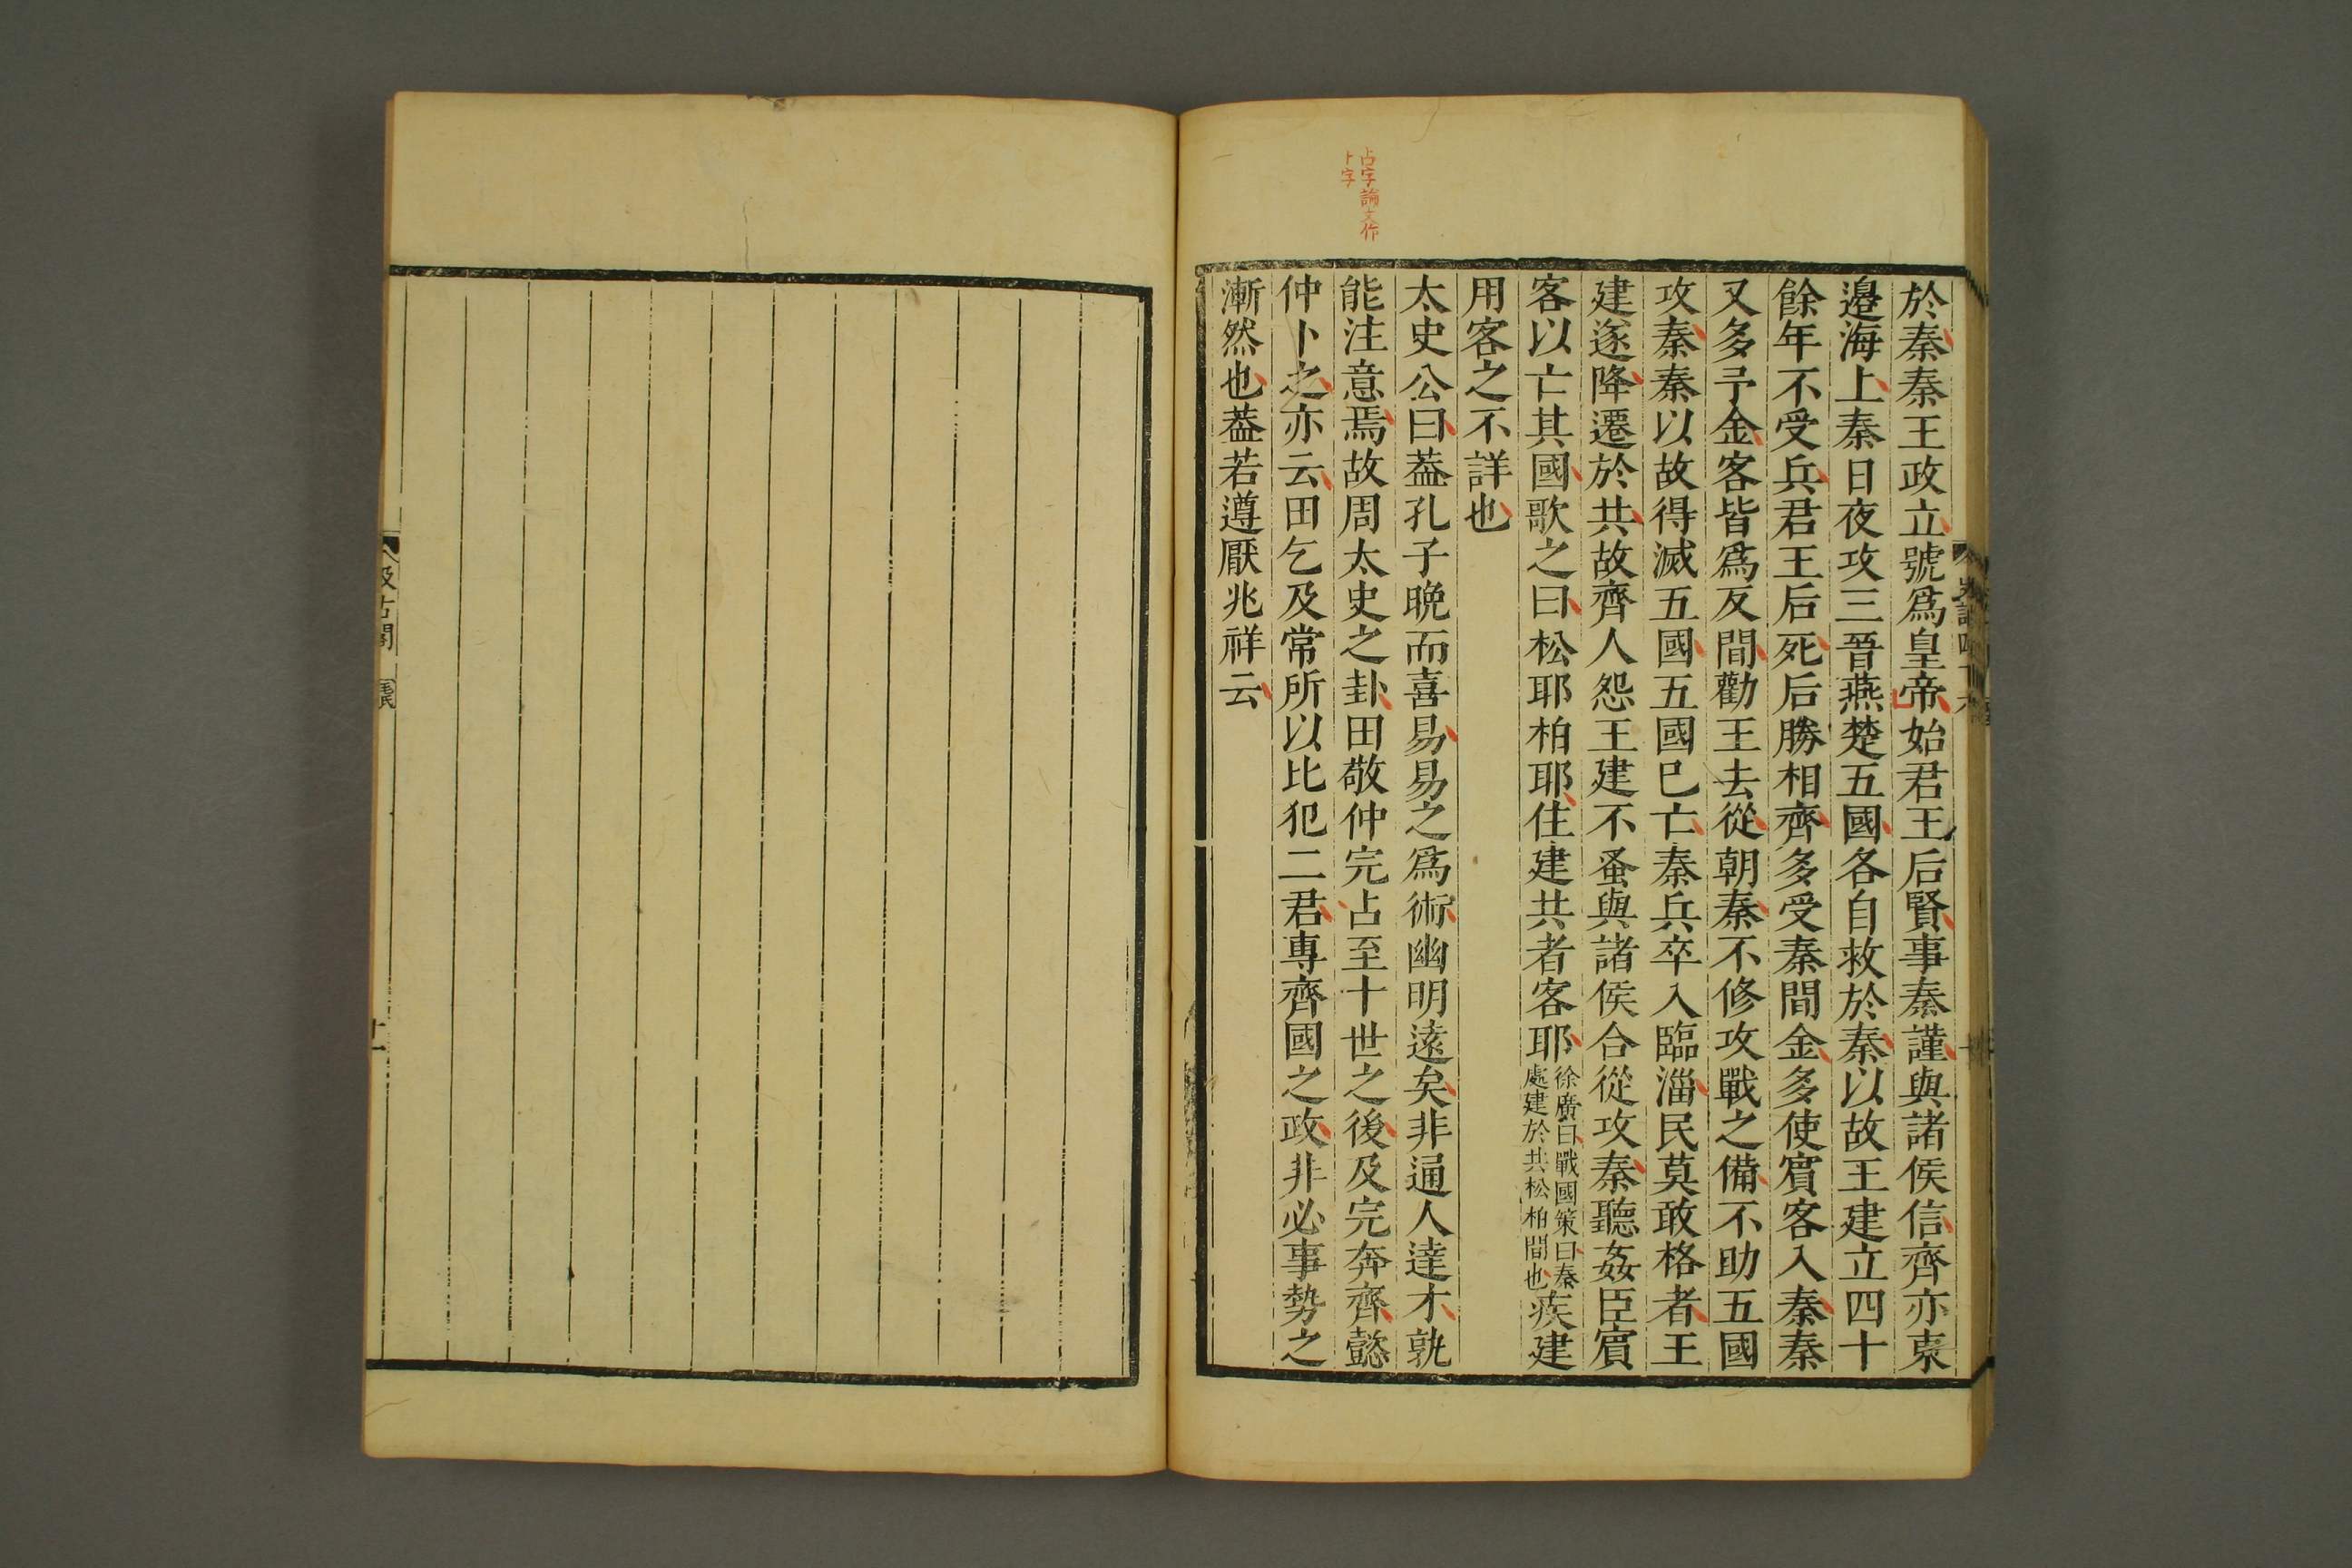 占字論文作
卜字
於秦秦王政立號爲皇帝始君王后賢事秦謹與諸侯信齊亦東
邉海上秦日夜攻三晉燕楚五國各自救於秦以故王建立四十
餘年不受兵君王后死后勝相齊多受秦間金多使賓客入秦秦
又多予金客皆爲反間勸王去從朝秦不修攻戰之備不助五國
攻秦秦以故得滅五國五國已亡秦兵卒入臨淄民莫敢格者王
建遂降遷於共故齊人怨王建不蚤與諸侯合從攻秦聽姦臣賓
客以亡其國歌之曰松耶柏耶住建共者客耶徐廣曰戰國策曰秦處建於共松柏間也疾建
用客之不詳也
太史公曰葢孔子晚而喜易易之爲術幽明遠矣非通人達才孰
能注意焉故周太史之卦田敬仲完占至十世之後及完奔齊懿
仲卜之亦云田乞及常所以比犯二君專齊國之政非必事勢之
漸然也葢若遵厭兆祥云
汲古閣
毛氏
十一